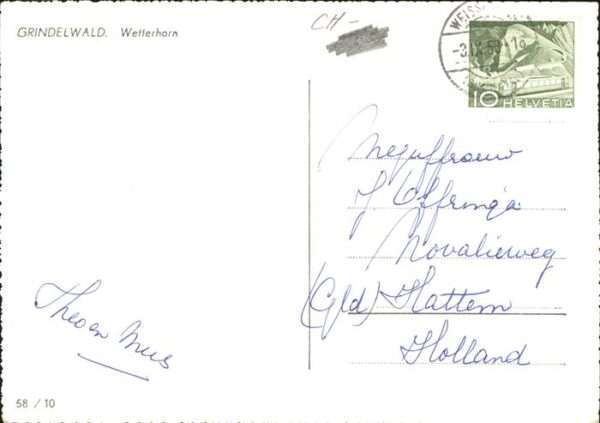 GRINDELWALD. Wetterhorn
CH-
10 HELVETIA
Mejuffrouw
J. Offringa
Novalieweg
(Gld) Hattem
Holland
Theo en
58 / 10